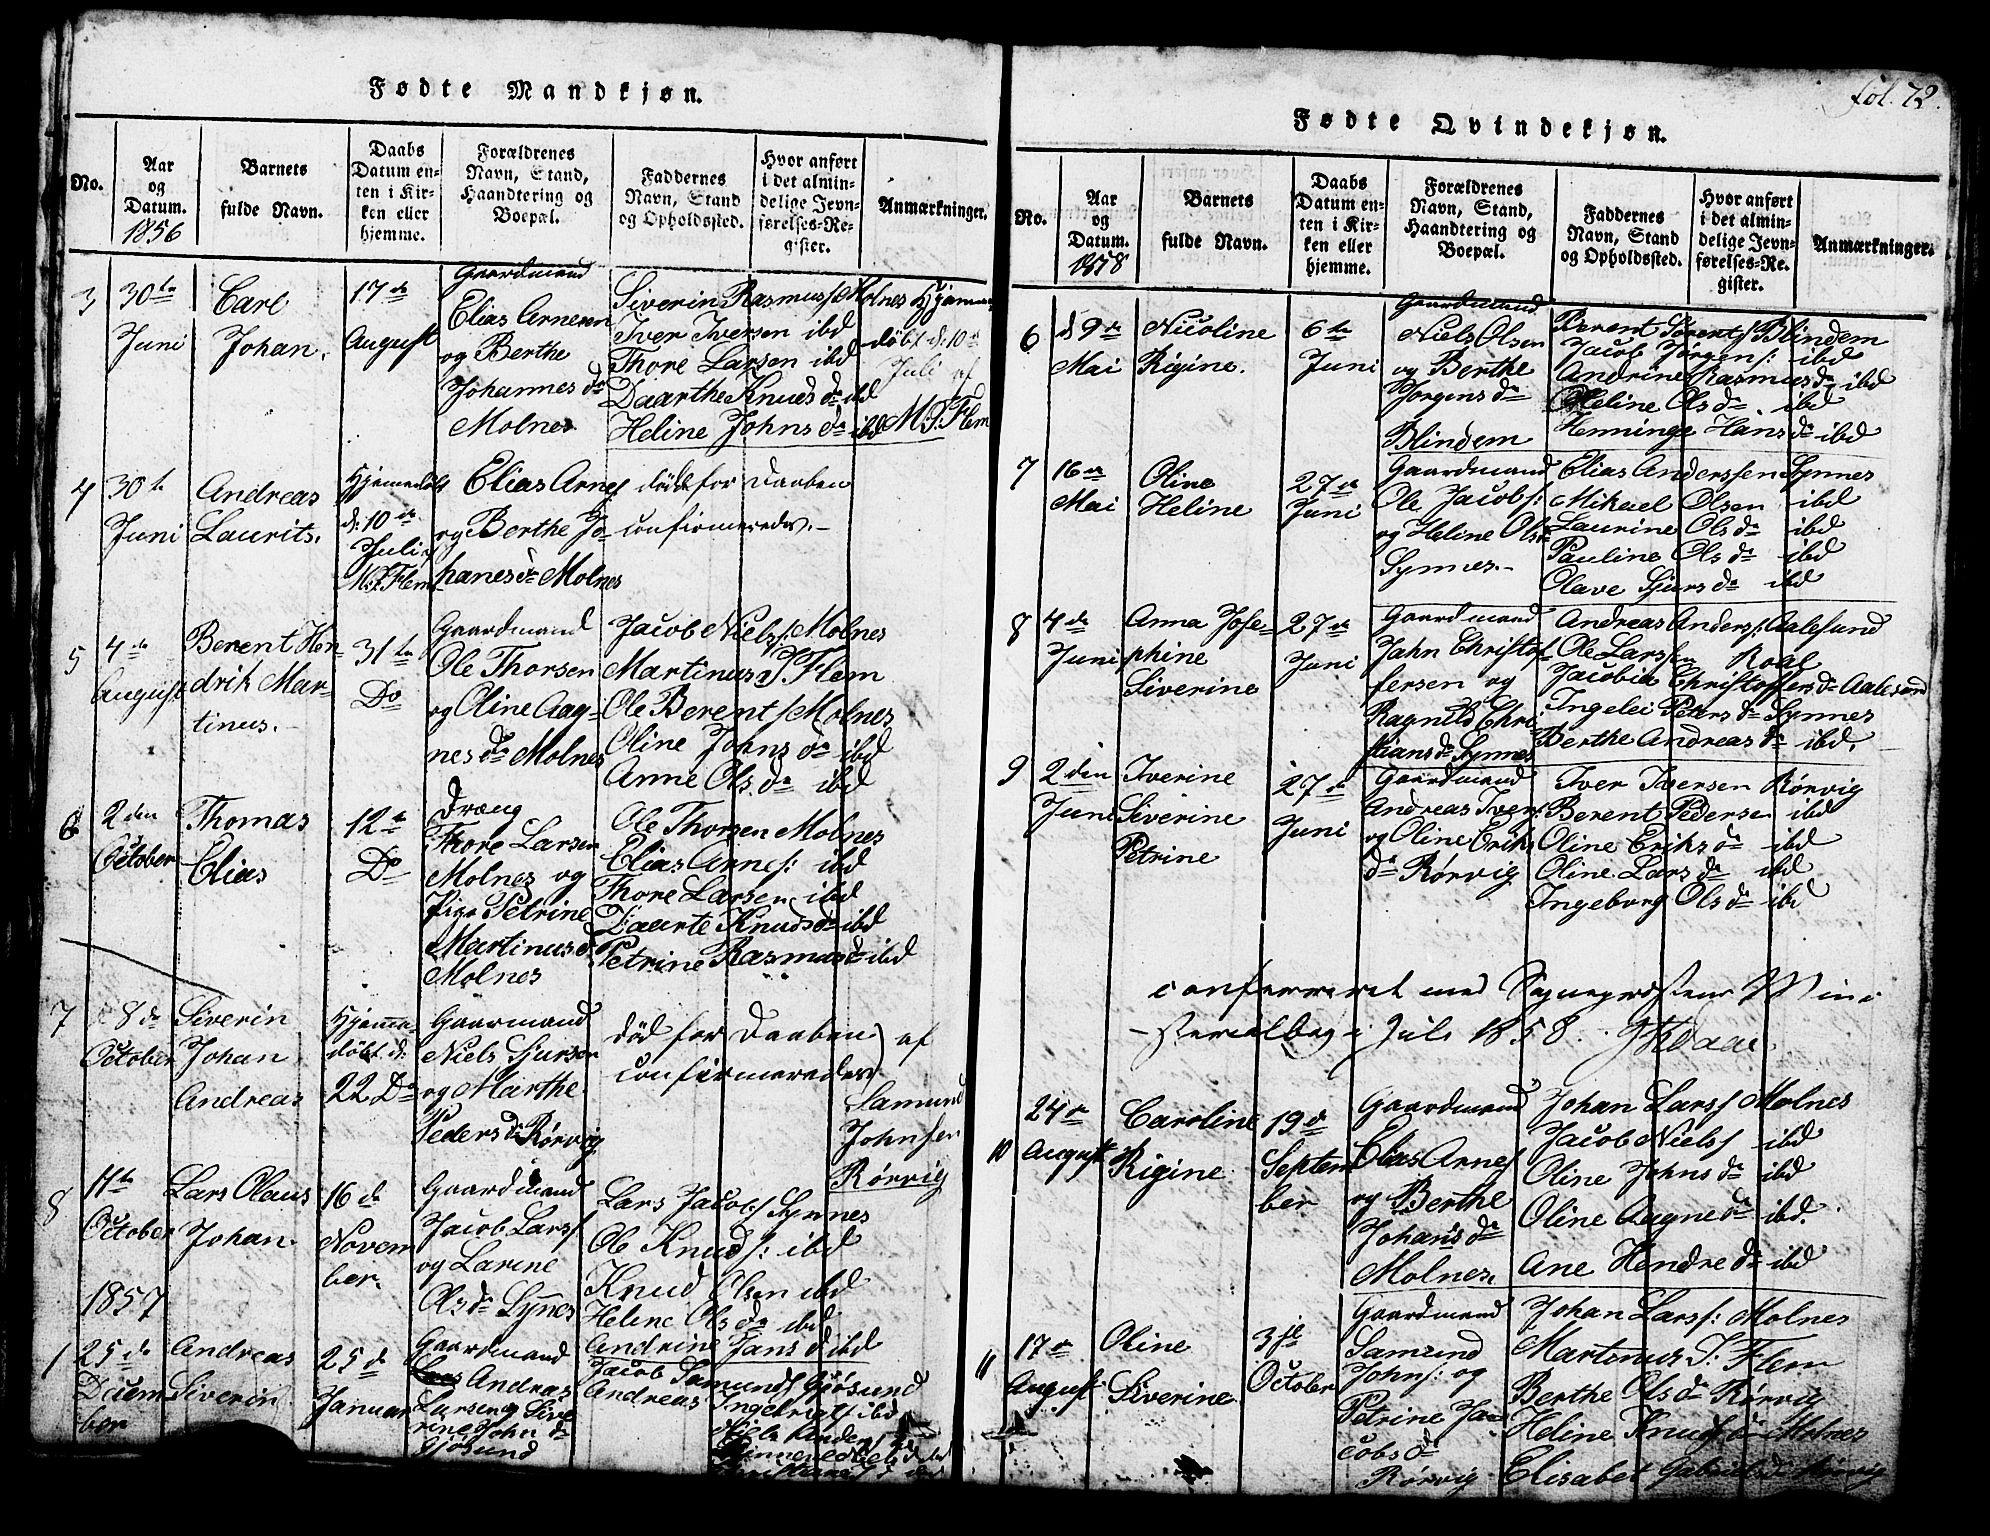 Fol. 72.
Fødte Mandkjøn.
No.
Aar og Datum. 1856
Barnets fulde Navn.
Daabs Datum enten i Kirken eller hjemme.
Forældrenes Navn, Stand, Haandtering og Boepæl.
Faddernes Navn, Stand og Opholdssted.
Hvor anført i det almindelige Jevnførelses-Register.
Anmærkninger.
3
30te Juni
Carl Johan.
17de August
Gaardmand
Elias Arnesen
og Berthe
Johannes dr
Molnes
Siverin Rasmuss Molnes
Iver Iversen ibd
Thore Larsen ibd
Daarthe Knuds dr ibd
Heline Johns dr ibd
Hjemme
døbt d: 10de
Juli af
M. J. Flem
4
30te Juni
Andreas Laurits.
Hjemmedøbt
d: 10de
Juli
M. J. Flem
Elias Arnes
og Berthe Jo-
hanes dr Molnes
død for Daaben
confirmeredes.-
5
4de August
Berent Hen-
drik Mar-
tinus.-
31te Do
Gaardmand
Ole Thorsen
og Oline Aag-
nes dr Molnes
Jacob Niels: Molnes
Martinus J. Flem
Ole Berents Molnes
Oline Johns dr ibd
Anne Ols dr ibd
6
2den October
Thomas Elias
12te Do
Dræng
Thore Larsen
Molnes og
Pige Petrine
Martinus d.
Molnes
Ole Thorsen Molnes
Elias Arnes: ibd
Thore Larsen ibd
Daarte Knuds dr ibd
Petrine Rasmus dr ibd
7
8de October
Siverin
Johan
Andreas
Hjemme-
døbt d:
22 Do
Gaarmand
Niels Sjursen
og Marthe
Peders dr Rørvig
død for Daaben
confirmeredes
af
Samund
Johnsen
Rørvig
8
11te October
Lars Olaus
Johan.
16de
Novem
ber
Gaardmand
Jacob Larss
og Larine
Ols dr Synnes
Lars Jacobs Synnes
Ole Knuds: ibd
Knud Olsen ibd
Heline Ols dr ibd
Andrine Jans d ibd
1857
1
25de
Decem
ber
Andreas
Siverin
25d
Januar
Gaardmand
Andreas
Larsen og Sive
rine John dr
Gjøsund
Jacob Samunds Gjøsund
Andreas Ingebrigts ibd
Fødte Qvindekjøn.
No.
Aar og Datum. 1858
Barnets fulde Navn.
Daabs Datum enten i Kirken eller hjemme.
Forældrenes Navn, Stand, Haandtering og Boepæl.
Faddernes Navn, Stand og Opholdssted.
Hvor anført i det almindelige Jevnførelses-Register.
Anmærkninger.
6
d 9de Mai
Nicoline
Rigine.
6te Juni
Gaardmand
Niels Olsen
og Berthe
Jørgens dr
Blindem
Berent Sørents Blindem
Jacob Jørgens: ibd
Andrine Rasmus dr ibd
Oleline Ols dr ibd
Henninge Hans dr ibd
7
16de Mai
Oline
Heline
27de Juni
Gaardmand
Ole Jacobs:
og Heline Ols dr
Synnes.-
Elias Anderssen Synnes
Mikael Olsen ibd
Laurine Ols dr ibd
Pauline Ols dr ibd
Olave Sjurs dr ibd
8
4de Juni
Anna Jose-
phine
Siverine
27de Juni
Gaardmand
Jahn Christof-
fersen og
Ragnild Chri-
stians dr Synnes
Andreas Anders: Aalesund
Ole Larssen Roal
Jacobia Christoffers dr Aalesund
Ingelei Peters dr Synnes
Berthe Andreas dr ibd.
9
2den Juni
Iverine
Siverine
Petrine
27de Juni
Gaardmand
Andreas Ivers:
og Oline Eriks
dr Rørvig
Iver Iversen Rørvig
Berent Pedersen ibd
Oline Eriks dr ibd
Oline Lars dr ibd
Ingeborg Ols dr ibd
conferreret med Sognepræstens Mini-
sterialbog i Juli 1858.
10
24de August
Caroline
Rigine
19d Septem
ber
Gaardmand
Elias Arnes
og Berthe
Johans dr
Molnes,
Johan Larss Molnes
Jacob Niels ibd
Oline Johns dr ibd
Oline Aagne dr ibd.
Ane Hendre dr ibd
11
17de August
Oline
Siverine
3je October
Gaardmand
Samund
Johns: og
Petrine Ja-
cobs dr
Rørvig
Johan Larss: Molnes
Martinus J: Flem
Berthe Ols dr Rørvig
Heline Knuds dr Molnes
Elisabet Gabriels dr Rørvig